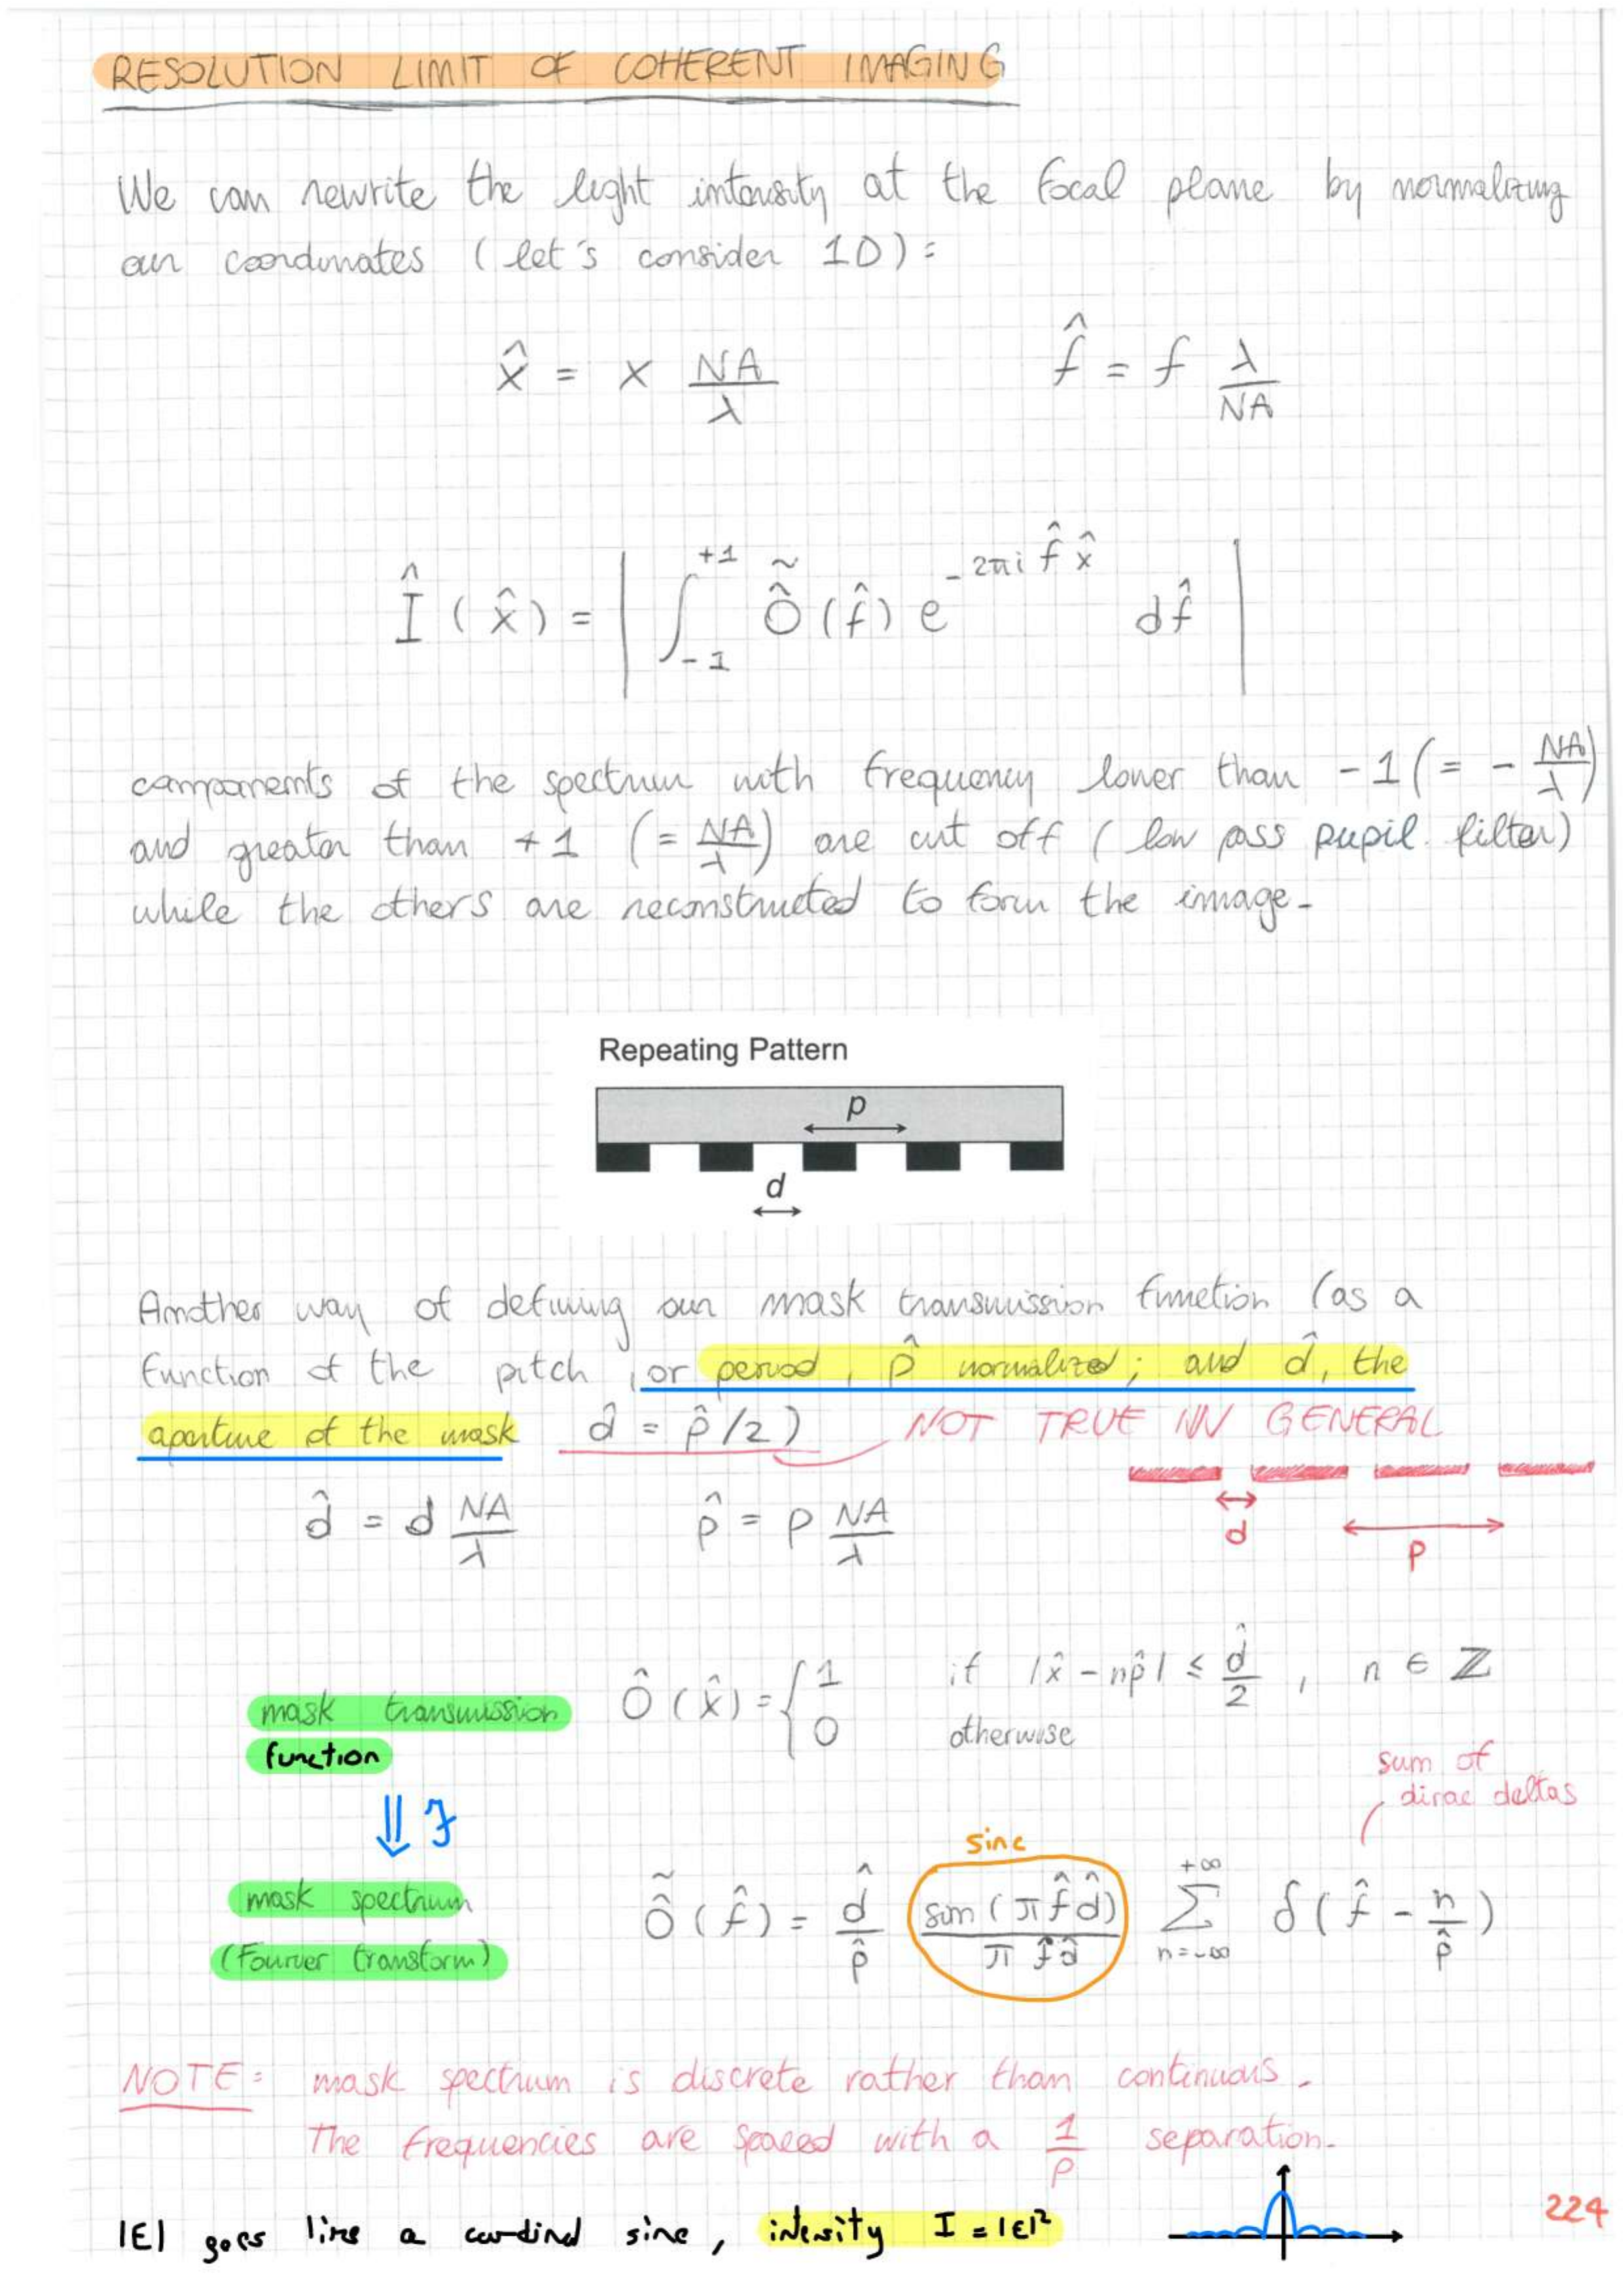 RESOLUTION LIMIT OF COHERENT IMAGING
We can rewrite the light intensity at the focal plane by normalizing
our coordinates (let's consider 1D):
x̂ = x NA/λ    f̂ = f λ/NA
Î(x̂) = | ∫₋₁⁺¹ Õ̂(f̂) e^(-2πi f̂ x̂) df̂ |
components of the spectrum with frequency lower than -1 (= - NA/λ)
and greater than +1 (= NA/λ) are cut off (low pass pupil filter)
while the others are reconstructed to form the image-
Repeating Pattern
p
d
Another way of defining our mask transmission function (as a
function of the pitch, or period, p̂ normalized; and d̂, the
aperture of the mask d̂ = p̂/2) NOT TRUE IN GENERAL
d̂ = d NA/λ    p̂ = p NA/λ
d
P
mask transmission
function
Ô(x̂) = { 1 if |x̂ - np̂| ≤ d̂/2 , n ∈ ℤ
0 otherwise
sum of
dirac deltas
⇓ F
sinc
mask spectrum
(Fourier transform)
Õ̂(f̂) = d̂/p̂ sin(π f̂ d̂)/(π f̂ d̂) Σ_{n=-∞}^{+∞} δ(f̂ - n/p̂)
NOTE: mask spectrum is discrete rather than continuous.
The frequencies are spaced with a 1/p separation.
|E| goes like a cardinal sine, intensity I = |E|²
224